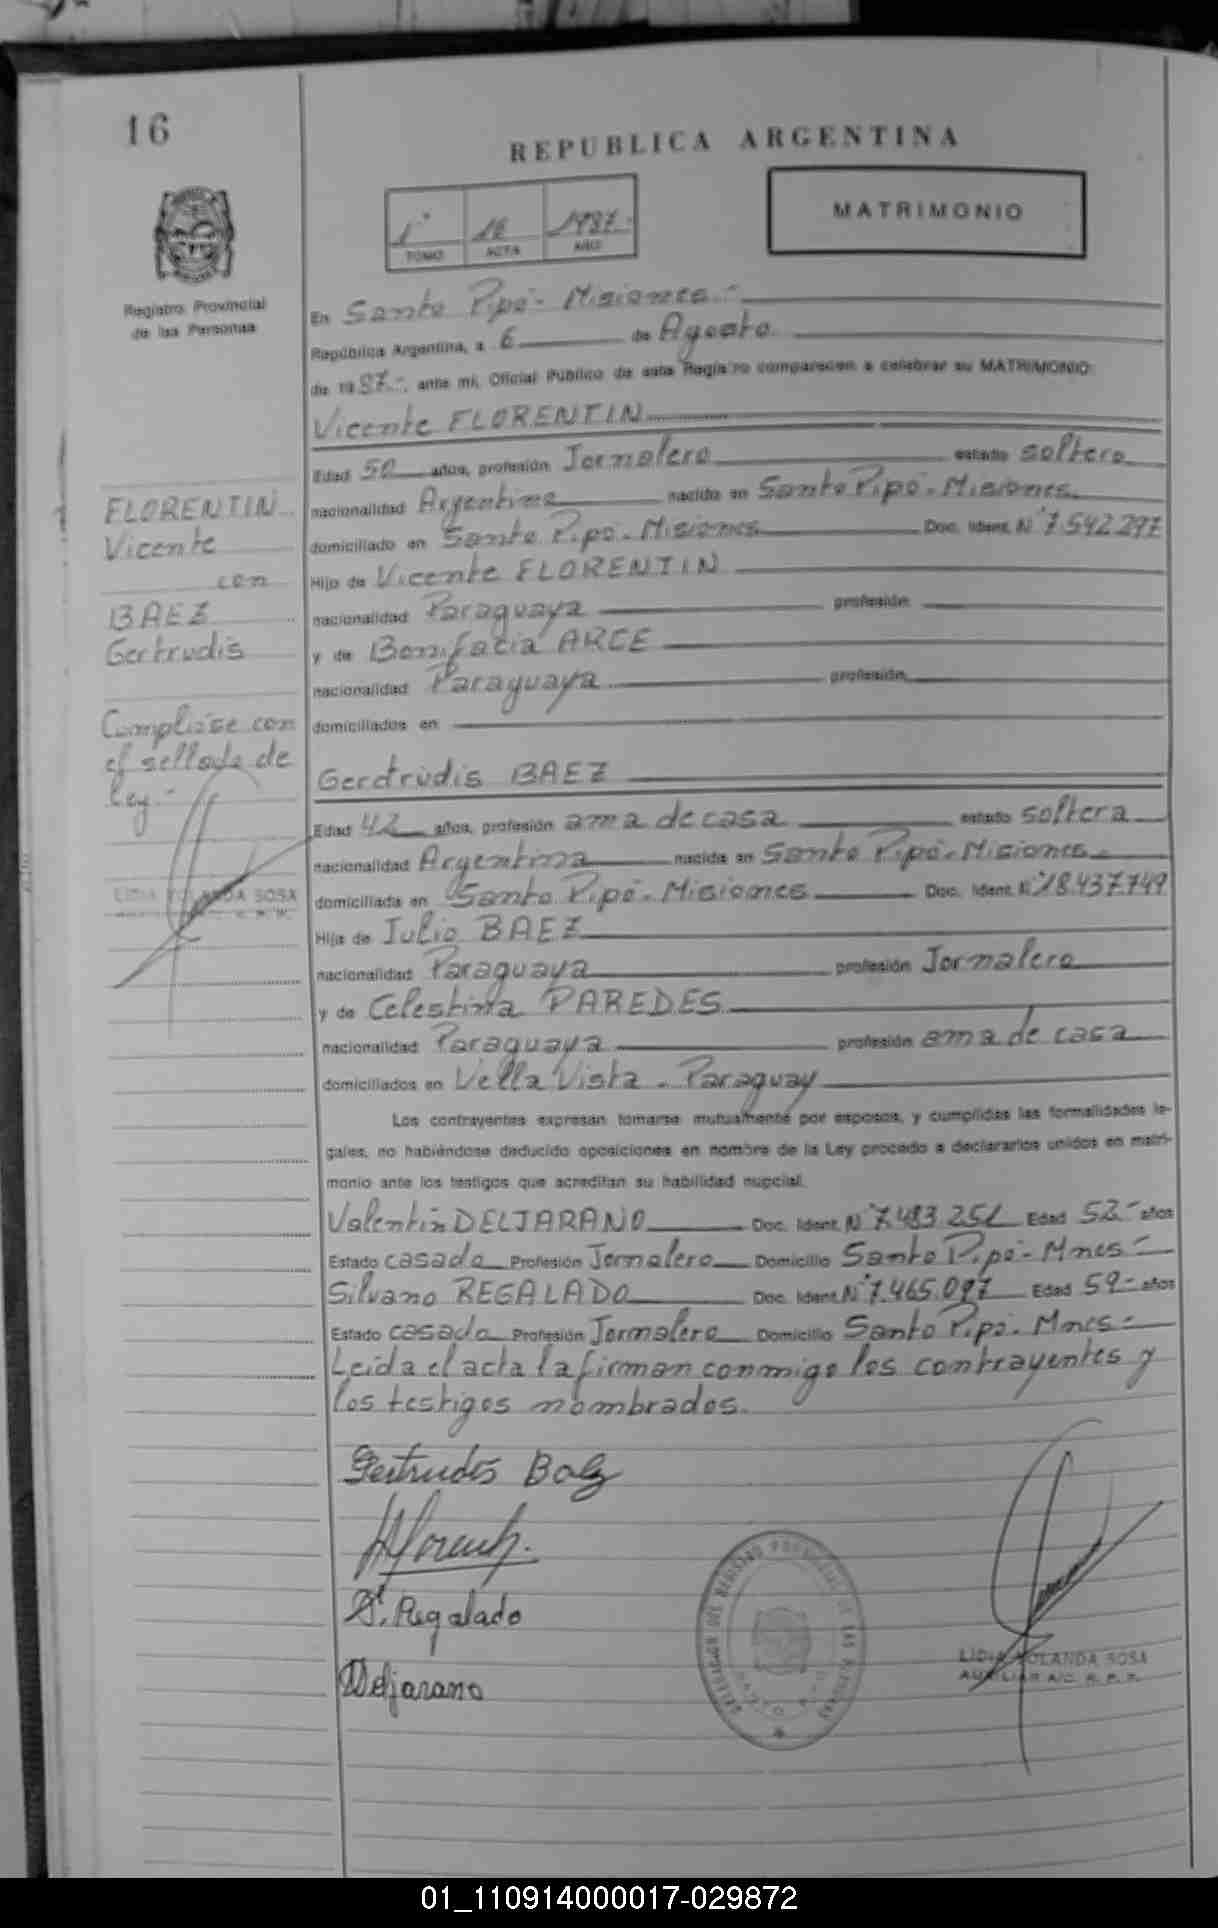 16
REPUBLICA ARGENTINA
1° 16 1987.-
TOMO ACTA AÑO
MATRIMONIO
Registro Provincial
de las Personas
En Santo Pipó - Misiones.-
República Argentina, a 6 de Agosto
de 1987.-, ante mí, Oficial Público de este Registro comparecen a celebrar su MATRIMONIO:
Vicente FLORENTIN
Edad 50 años, profesión Jornalero estado soltero
nacionalidad Argentina nacido en Santo Pipó - Misiones
domiciliado en Santo Pipó - Misiones Doc. Ident. N° 7.542.297
Hijo de Vicente FLORENTIN
nacionalidad Paraguaya profesión
y de Bonifacia ARCE
nacionalidad Paraguaya profesión
domiciliados en
Gerdrudis BAEZ
Edad 42 años, profesión ama de casa estado soltera
nacionalidad Argentina nacida en Santo Pipó - Misiones
domiciliada en Santo Pipó - Misiones Doc. Ident. N° 18.437.749
Hija de Julio BAEZ
nacionalidad Paraguaya profesión Jornalero
y de Celestina PAREDES
nacionalidad Paraguaya profesión ama de casa
domiciliados en Vella Vista - Paraguay
Los contrayentes expresan tomarse mutuamente por esposos, y cumplidas las formalidades le-
gales, no habiéndose deducido oposiciones en nombre de la Ley procedo a declararlos unidos en matri-
monio ante los testigos que acreditan su habilidad nupcial.
Valentin DELJARANO Doc. Ident. N° 7.483.251 Edad 52.- años
Estado casado Profesión Jornalero Domicilio Santo Pipó - Mnes -
Silvano REGALADO Doc. Ident. N° 7.465.097 Edad 59 - años
Estado casado Profesión Jornalero Domicilio Santo Pipó - Mnes -
Leida el acta la firman conmigo los contrayentes y
los testigos nombrados.
FLORENTIN
Vicente
con
BAEZ
Gertrudis
Cumpliose con
el sellado de
ley.-
LIDIA YOLANDA SOSA
Gertrudis Baez
S. Regalado
VDeljarano
LIDIA YOLANDA SOSA
AUXILIAR A/C. R. P. P.
01_110914000017-029872